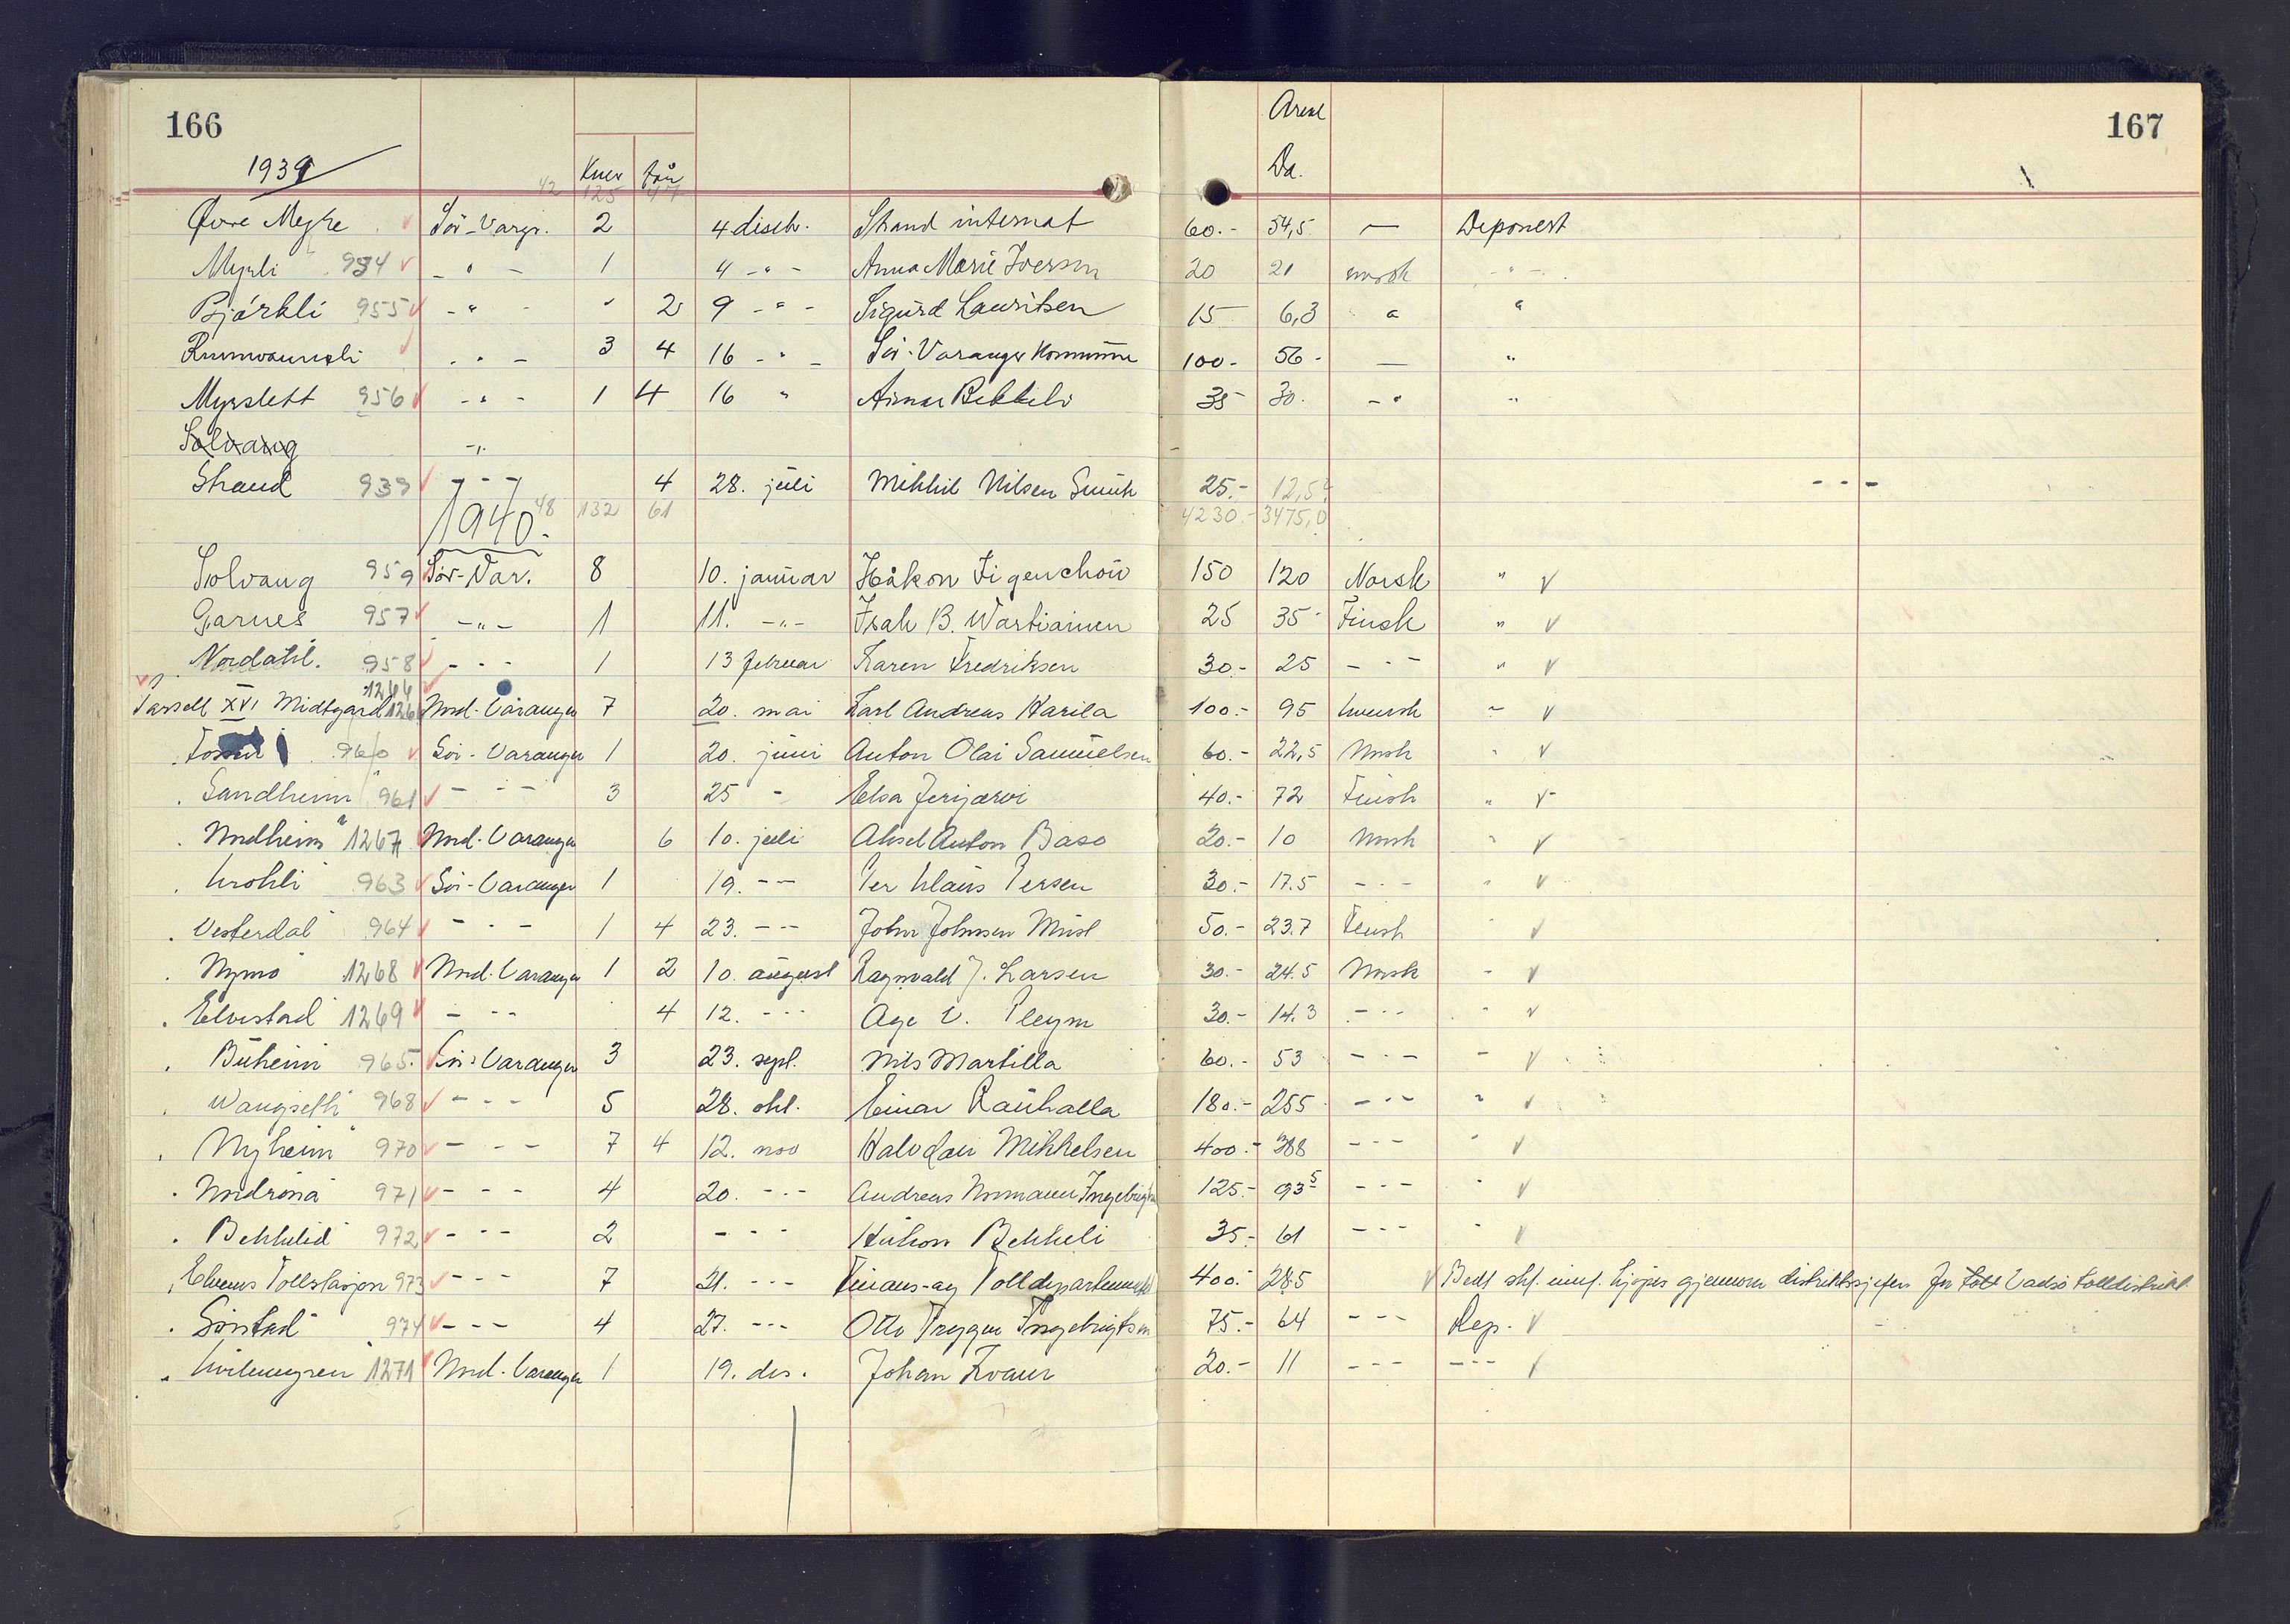 166
167
Areal
1939
Da.
42 125 47
Øvre Sør-Varg. 2 4 disch. Strand internat 60.- 54,5 — Deponert
Myrli 954 - " - 1 4 - " - Anna Marie Iversen 20 21 norsk - " -
Bjørkli 955 - " - " 2 9 - " - Sigurd Lauritsen 15 6,3 " "
. " - 3 4 16 - " - Sør-Varanger Kommune 100.- 56.- — "
Myrslett 956 - " - 1 4 16 " Bekkeli 35 30. - " "
Solvang - " -
Strand 939 - " - 4 28. juli Mikkel Nilsen 25.- 12,5 - - -
1940. 48 132 61 4230.- 3475,0
Solvang 959 Sør-Var. 8 10. januar Håkon Figenchou 150 120 Norsk " V
Garnes 957 - " - 1 11. - " - Isak B. Wartiainen 25 35 Finsk " V
Nordahl. 958 - " - 1 13 februar Karen Fredriksen 30.- 25 - " - " V
1266
Parsell XVI Midtgård 126 Nord-Varanger 7 20. mai Karl Andreas Karila 100.- 95 kvensk " V
Fossen 960 Sør-Varanger 1 20. juni Anton Olai Samuelsen 60.- 22,5 Norsk " V
Sandheim 961 - " - 3 25 " Elsa Jerijærvi 40.- 72 Finsk " V
Nordheim 1267 Nord-Varanger 6 10. juli Aksel Anton Baso 20.- 10 Norsk " V
Krohli 963 Sør-Varanger 1 19. - - Per Klaus Persen 30.- 17.5 - " - " V
Vesterdal 964 - " - 1 4 23. - - John Johnsen 50.- 23.7 Finsk " V
Nymo 1268 Nord-Varanger 1 2 10. august Ragnvald J. Larsen 30.- 24.5 Norsk " V
Elvestad 1269 - - - 4 12. - - - Åge V. Pleym 30.- 14.3 - - - " V
Buheim 965. Sør-Varanger 3 23. sept. Nils Martilla 60.- 53 - - - " V
968 - - - 5 28. okt. Einar Rauhalla 180.- 255 - - - " V
Nyheim 970 - - - 7 4 12. nov Halvdan Mikkelsen 400.- 388 - - - " V
971 - - - 4 20. - - - Andreas Normann Ingebrigtsen 125.- 93⁵ - - - " V
Bekkelid 972 - - - 2 - - - Håkon Bekkeli 35.- 61 - - - " V
Elvenes Tollstasjon 973 - - - 7 21. - - - Finans-og Tolldepartementet 400.- 285 V Bedt skj. innf. kjøpes gjennom distriktssjefen for Vadsø tolldistrikt
974 - - - 4 27. - - - Otto Trygve Ingebrigtsen 75.- 64 - - - Dep. V
1271 Nord-Varanger 1 19. des. Johan Kvam 20.- 11 - - - - - - V